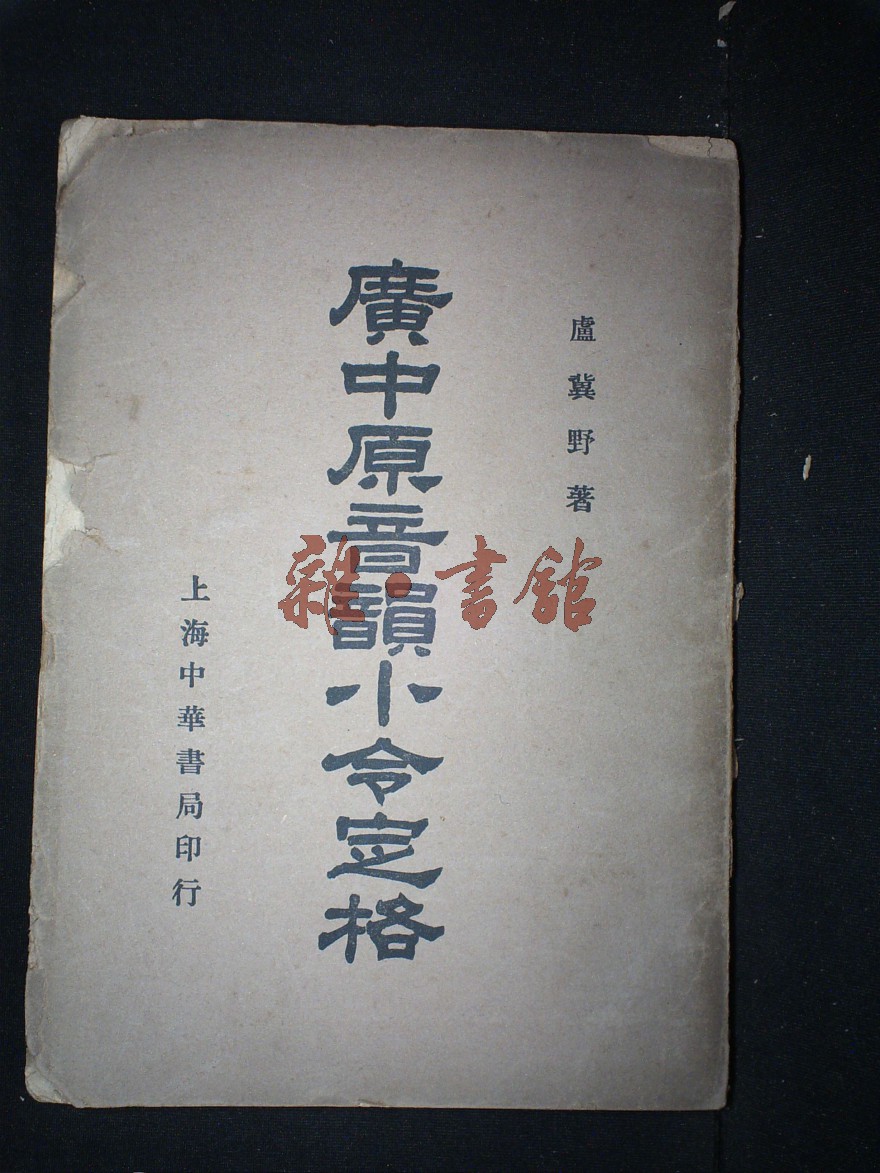 盧冀野著
廣中原音韻小令定格
上海中華書局印行
雜·書館